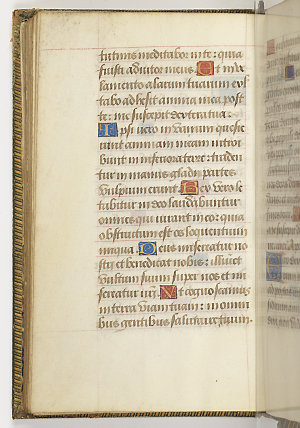 tutinis meditabor in te: quia
fuisti adiutor meus Et in ve
lamento alarum tuarum exl
tabo adhesit anima mea post
te: me suscepit dextera tua
Ipsi vero in vanum quesie
runt animam meam introi
bunt in inferiora terre: traden
tur in manus gladii partes
vulpium erunt Rex vero le
tabitur in deo laudabuntur
omnes qui iurant in eo: quia
obstructum est os loquentium
iniqua Deus misereatur no
stri et benedicat nobis: illuiet
vultum suum super nos et mi
sereatur nri Ut cognoscamus
in terra viam tuam: in omni
bus gentibus salutare tuum.